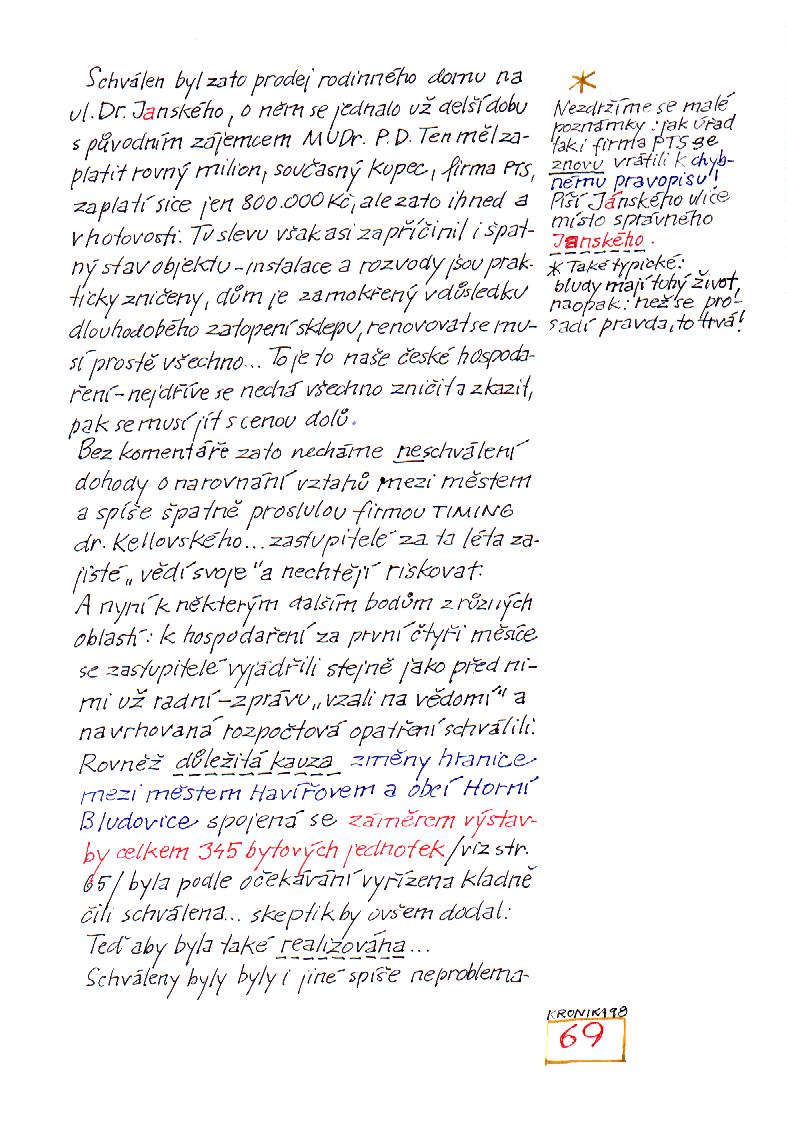 Schválen byl zato prodej rodinného domu na
ul. Dr. Janského, o něm se jednalo už delší dobu
s původním zájemcem MUDr. P.D. Ten měl za-
platit rovný milion, současný kupec, firma PTS,
zaplatí sice jen 800.000 Kč, ale zato ihned a
v hotovosti. Tu slevu však asi zapříčinil i špat-
ný stav objektu - instalace a rozvody jsou prak-
ticky zničeny, dům je zamokřený v důsledku
dlouhodobého zatopení sklepu, renovovat se mu-
sí prostě všechno... To je to naše české hospoda-
ření - nejdříve se nechá všechno zničit a zkazit,
pak se musí jít s cenou dolů.
Bez komentáře zato necháme neschválení
dohody o narovnání vztahů mezi městem
a spíše špatně proslulou firmou TIMING
dr. Kellovského... zastupitelé za ta léta za-
jisté „vědí svoje" a nechtějí riskovat.
A nyní k některým dalším bodům z různých
oblastí: k hospodaření za první čtyři měsíce
se zastupitelé vyjádřili stejně jako před ni-
mi už radní - zprávu „vzali na vědomí" a
navrhovaná rozpočtová opatření schválili.
Rovněž důležitá kauza změny hranice
mezi městem Havířovem a obcí Horní
Bludovice spojená se záměrem výstav-
by celkem 345 bytových jednotek /viz str.
65/ byla podle očekávání vyřízena kladně
čili schválena... skeptik by ovšem dodal:
Teď aby byla také realizována...
Schváleny byly byly i jiné spíše neproblema-
*
Nezdržíme se malé
poznámky: jak úřad
tak i firma PTS se
znovu vrátili k chyb-
nému pravopisu!
Píší Jánského ulice
místo správného
Janského.
* Také typické:
bludy mají tuhý život,
naopak: než se pro-
sadí pravda, to trvá!
KRONIKA 98
69